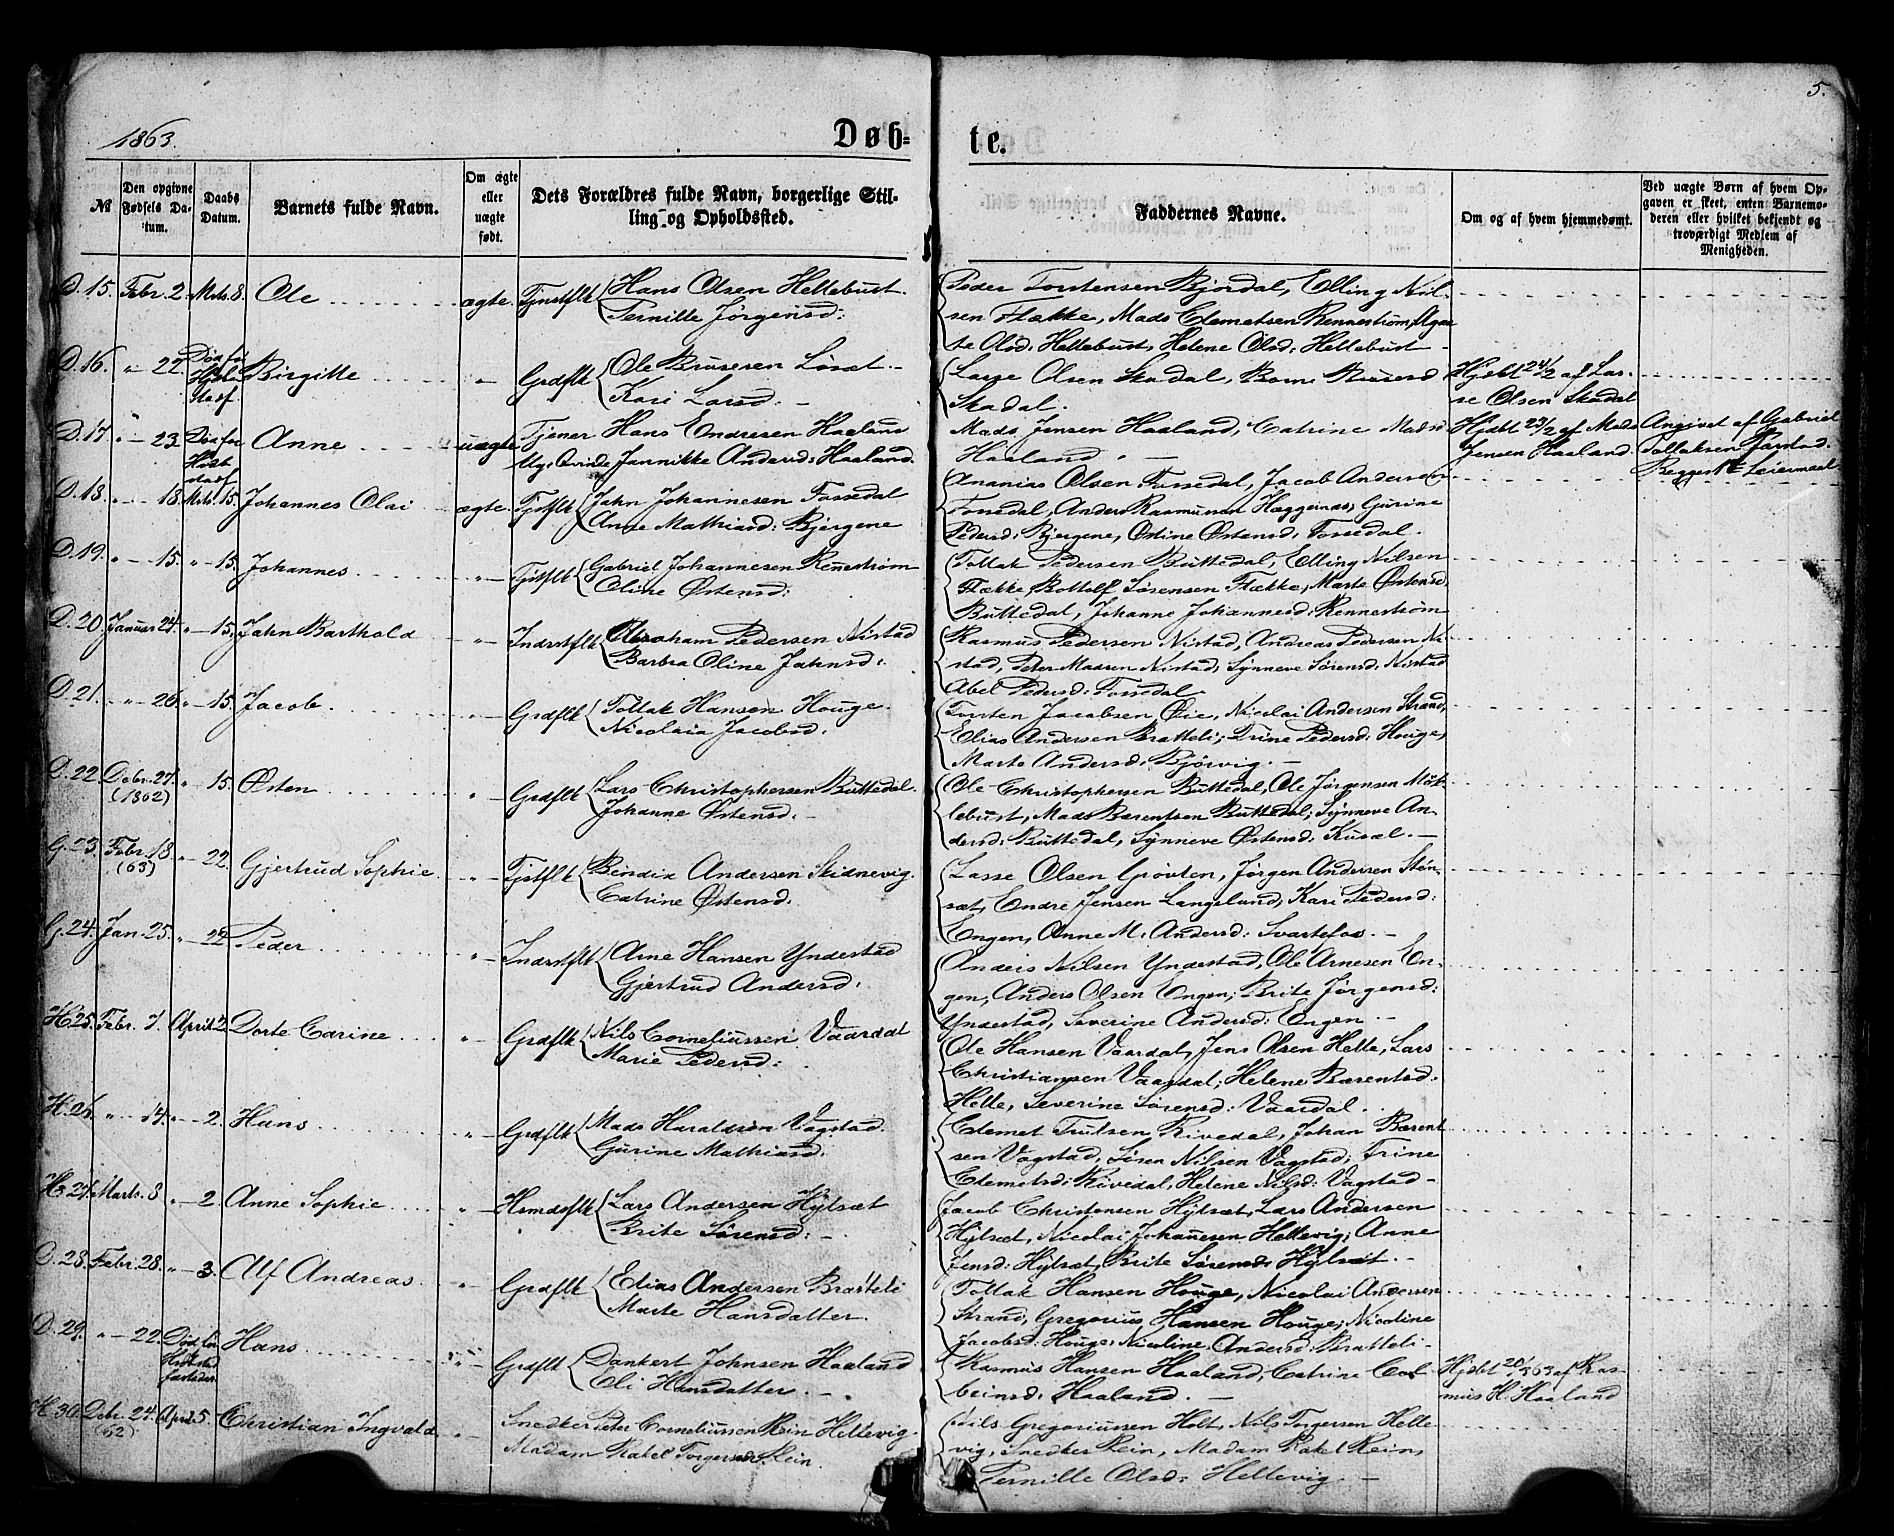 1863.
Døb-
te.
5.
№
Den opgivne Fødsels Datum.
Daabs Datum.
Barnets fulde Navn.
Om ægte eller uægte født.
Dets Forældres fulde Navn, borgerlige Stilling og Opholdssted.
Faddernes Navne.
Om og af hvem hjemmedømt.
Ved uægte Børn af hvem Opgaven er skeet, enten Barnemoderen eller hvilket bekjendt og troværdigt Medlem af Menigheden.
D. 15. Febr. 2. Mrts. 8. Ole ægte. Hans Olsen Hellebust.
Pernille Jørgensd:
Peder Torstensen Bjordal, Elling Nil-
sen Flække, Mads Clemetsen Rennestrøm,
Olsd: Hellebust, Helene Olsd: Hellebust
D. 16. " 22. Birgitte " Grdflk Ole Brusesen Løset.
Kari Larsd.
Lasse Olsen Skadal, Brusesd
Skadal.
Hjdbt 24/2 af Las-
se Olsen Skadal
D. 17. " 23. Anne uægte Tjener Hans Endresen Haaland
Ug: Qvinde Jannikke Andersd: Haaland.
Mads Jensen Haaland, Catrine Madsd
Haaland
Hjdbt 23/2 af Mads
Jensen Haaland.
Angivet af Gabriel
Tollaksen
Begges 1ste Leiermaal
D. 18. " 18. Mrts. 15. Johannes Olai ægte. Jahn Johannesen Fossedal
Anne Mathiasd: Bjergene
Ananias Olsen Fossedal, Jacob Anders:
Fossedal, Anders Rasmussen Heggenæs, Gurine
Pedersd: Bjergene, Østine Østensd: Fossedal.
D. 19. " 15. " 15. Johannes " Gabriel Johannesen Rennestrøm
Oline Østensd:
Tollak Pedersen Buttedal, Elling Nilsen
Flække, Bottolf Sørensen Flække, Marte Østensd.
Buttedal, Johanne Johannesd: Rennestrøm
D. 20. Januar 24. " 15. Jahn Barthold " Indrstflk Abraham Pedersen Nistad
Barbra Oline Jahnsd:
Rasmus Pedersen Nistad, Andreas Pedersen Ni-
stad, Peter Nistad, Synneve Sørensd: Nistad
Abel Pedersd: Fossedal
D. 21. " 26. " 15. Jacob. " Grdflk Tollak Hansen Houge.
Nicolaia Jacobsd.
Torsten Jacobsen Øie, Nicolai Andersen Strand,
Elias Andersen Bratteli; Trine Pedersd: Houge,
Marte Andersd: Bjørvig.
D. 22. Debr. 27. (1862) " 15. Østen " Grdflk Lars Christophersen Buttedal.
Johanne Østensd.
Ole Christophersen Buttedal, Ole Jørgensen Møk-
lebust, Mads Barentsen Buttedal; Synneve An-
dersd: Buttedal, Synneve Østensd:
G. 23. Febr. 18. (63) " 22. Gjertrud Sophie " Bendix Andersen Skidnevig.
Catrine Østensd.
Lasse Olsen Grøvlen, Jørgen Andersen Støn-
sæt, Endre Jensen Langelund, Kari Pedersd:
Engen, Anne M. Andersd: Svartefos.
G. 24. Jan. 25. " 22. Peder " Indrstflk Arne Hansen Yndestad
Gjertrud Andersd.
Anders Nilsen Yndestad, Ole Arnesen En-
gen, Anders Olsen Engen; Brite Jørgensd:
Yndestad, Severine Andersd: Engen.
H. 25. Febr. 7. April 2. Dorte Carine " Grdflk Nils Corneliussen Vaardal
Marie Pedersd:
Ole Hansen Vaardal, Jens Olsen Helle, Lars
Christiansen Vaardal; Helene Barentsd:
Helle, Severine Sørensd: Vaardal.
H. 26. " 14. " 2. Hans " Grdflk Mads Haraldsen Vagstad.
Gurine Mathiasd.
Clemet Trulsen Rivedal, Johan Barent
sen Vagstad, Søren Nilsen Vagstad; Trine
Clemetsd: Rivedal, Helene Nilsd: Vagstad
H. 27. Marts. 8 " 2. Anne Sophie " Hsmdsflk Lars Andersen Hylsæt
Brite Sørensd:
Jacob Christensen Hylsæt, Lars Andersen
Hylsæt, Nicolai Johannesen Hellevig; Anne
Jensd: Hylsæt, Brite Sørensd: Hylsæt.
D. 28. Febr. 28. " 3. Alf Andreas " Grdflk Elias Andersen Bratteli
Marte Hansdatter.
Tollak Hansen Houge, Nicolai Andersen
Strand, Gregorius Hansen Houge; Nicoline
Jacobsd: Houge; Nicoline Andersd: Bratteli
D. 29. " 22. Hans " Grdflk Dankert Johnsen Haaland
Eli Hansdatter.
Rasmus Hansen Haaland, Catrine Col
beinsd: Haaland.
Hjdbt af Ras-
mus H. Haaland
H. 30. Debr. 24. (62) April 5. Christian Ingvald " Snedker Peter Corneliussen Rein Hellevig.
Madam Rakel Torgersd: Rein.
Nils Gregoriussen Holt, Nils Torgersen Helle-
vig, Snedker Rein, Madam Rakel Rein,
Pernille Olsd: Hellevig.